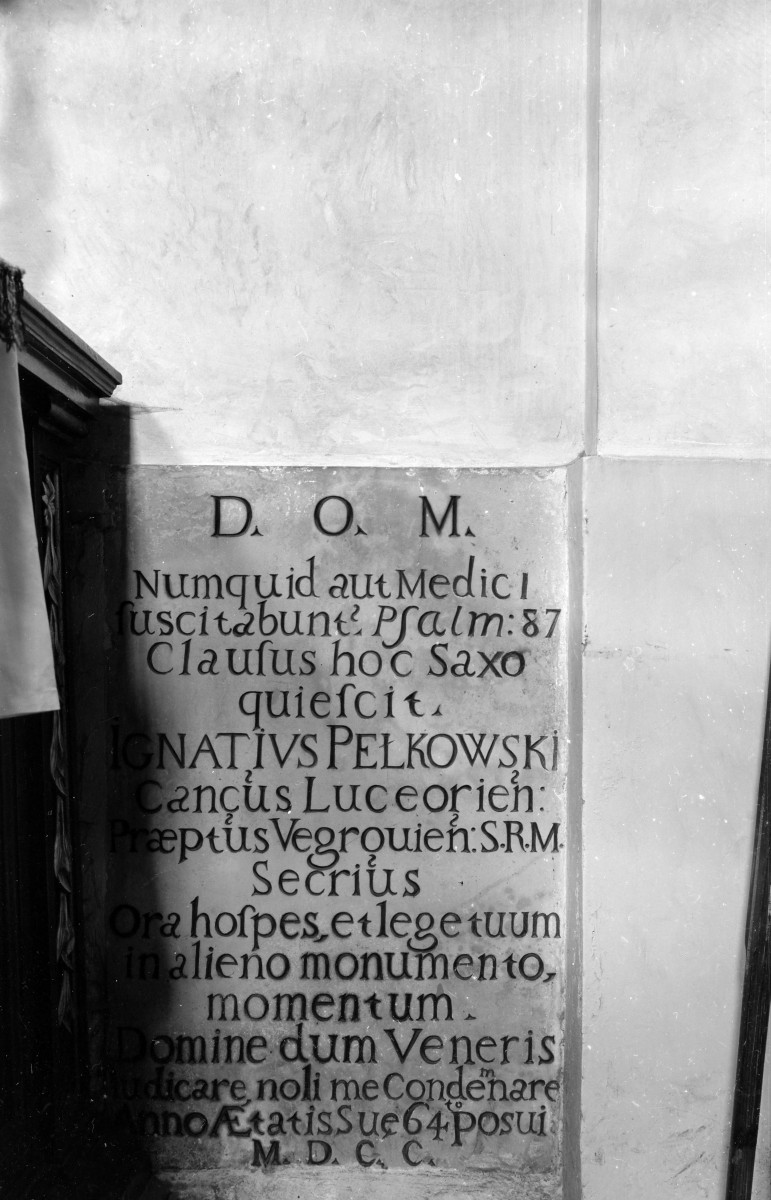 D. O. M.
Numquid aut Medici
ſuscitabunt? Pſalm: 87
Clauſus hoc Saxo
quieſcit.
IGNATIVS PEŁKOWSKI
Canc̃us Luceorien̄:
Præptus Vegrouien̄: S.R.M.
Secrius
Ora hoſpes, et lege tuum
in alieno monumento,
momentum.
Domine dum Veneris
iudicare noli me Condem̄nare
Anno Ætatis Sue 64to posui
M. D. C. C.